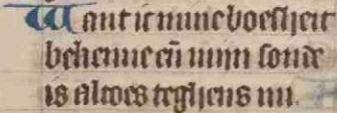 Want ic mine boesheit
bekenne eñ mijn sonde
is altoes teghens mi.